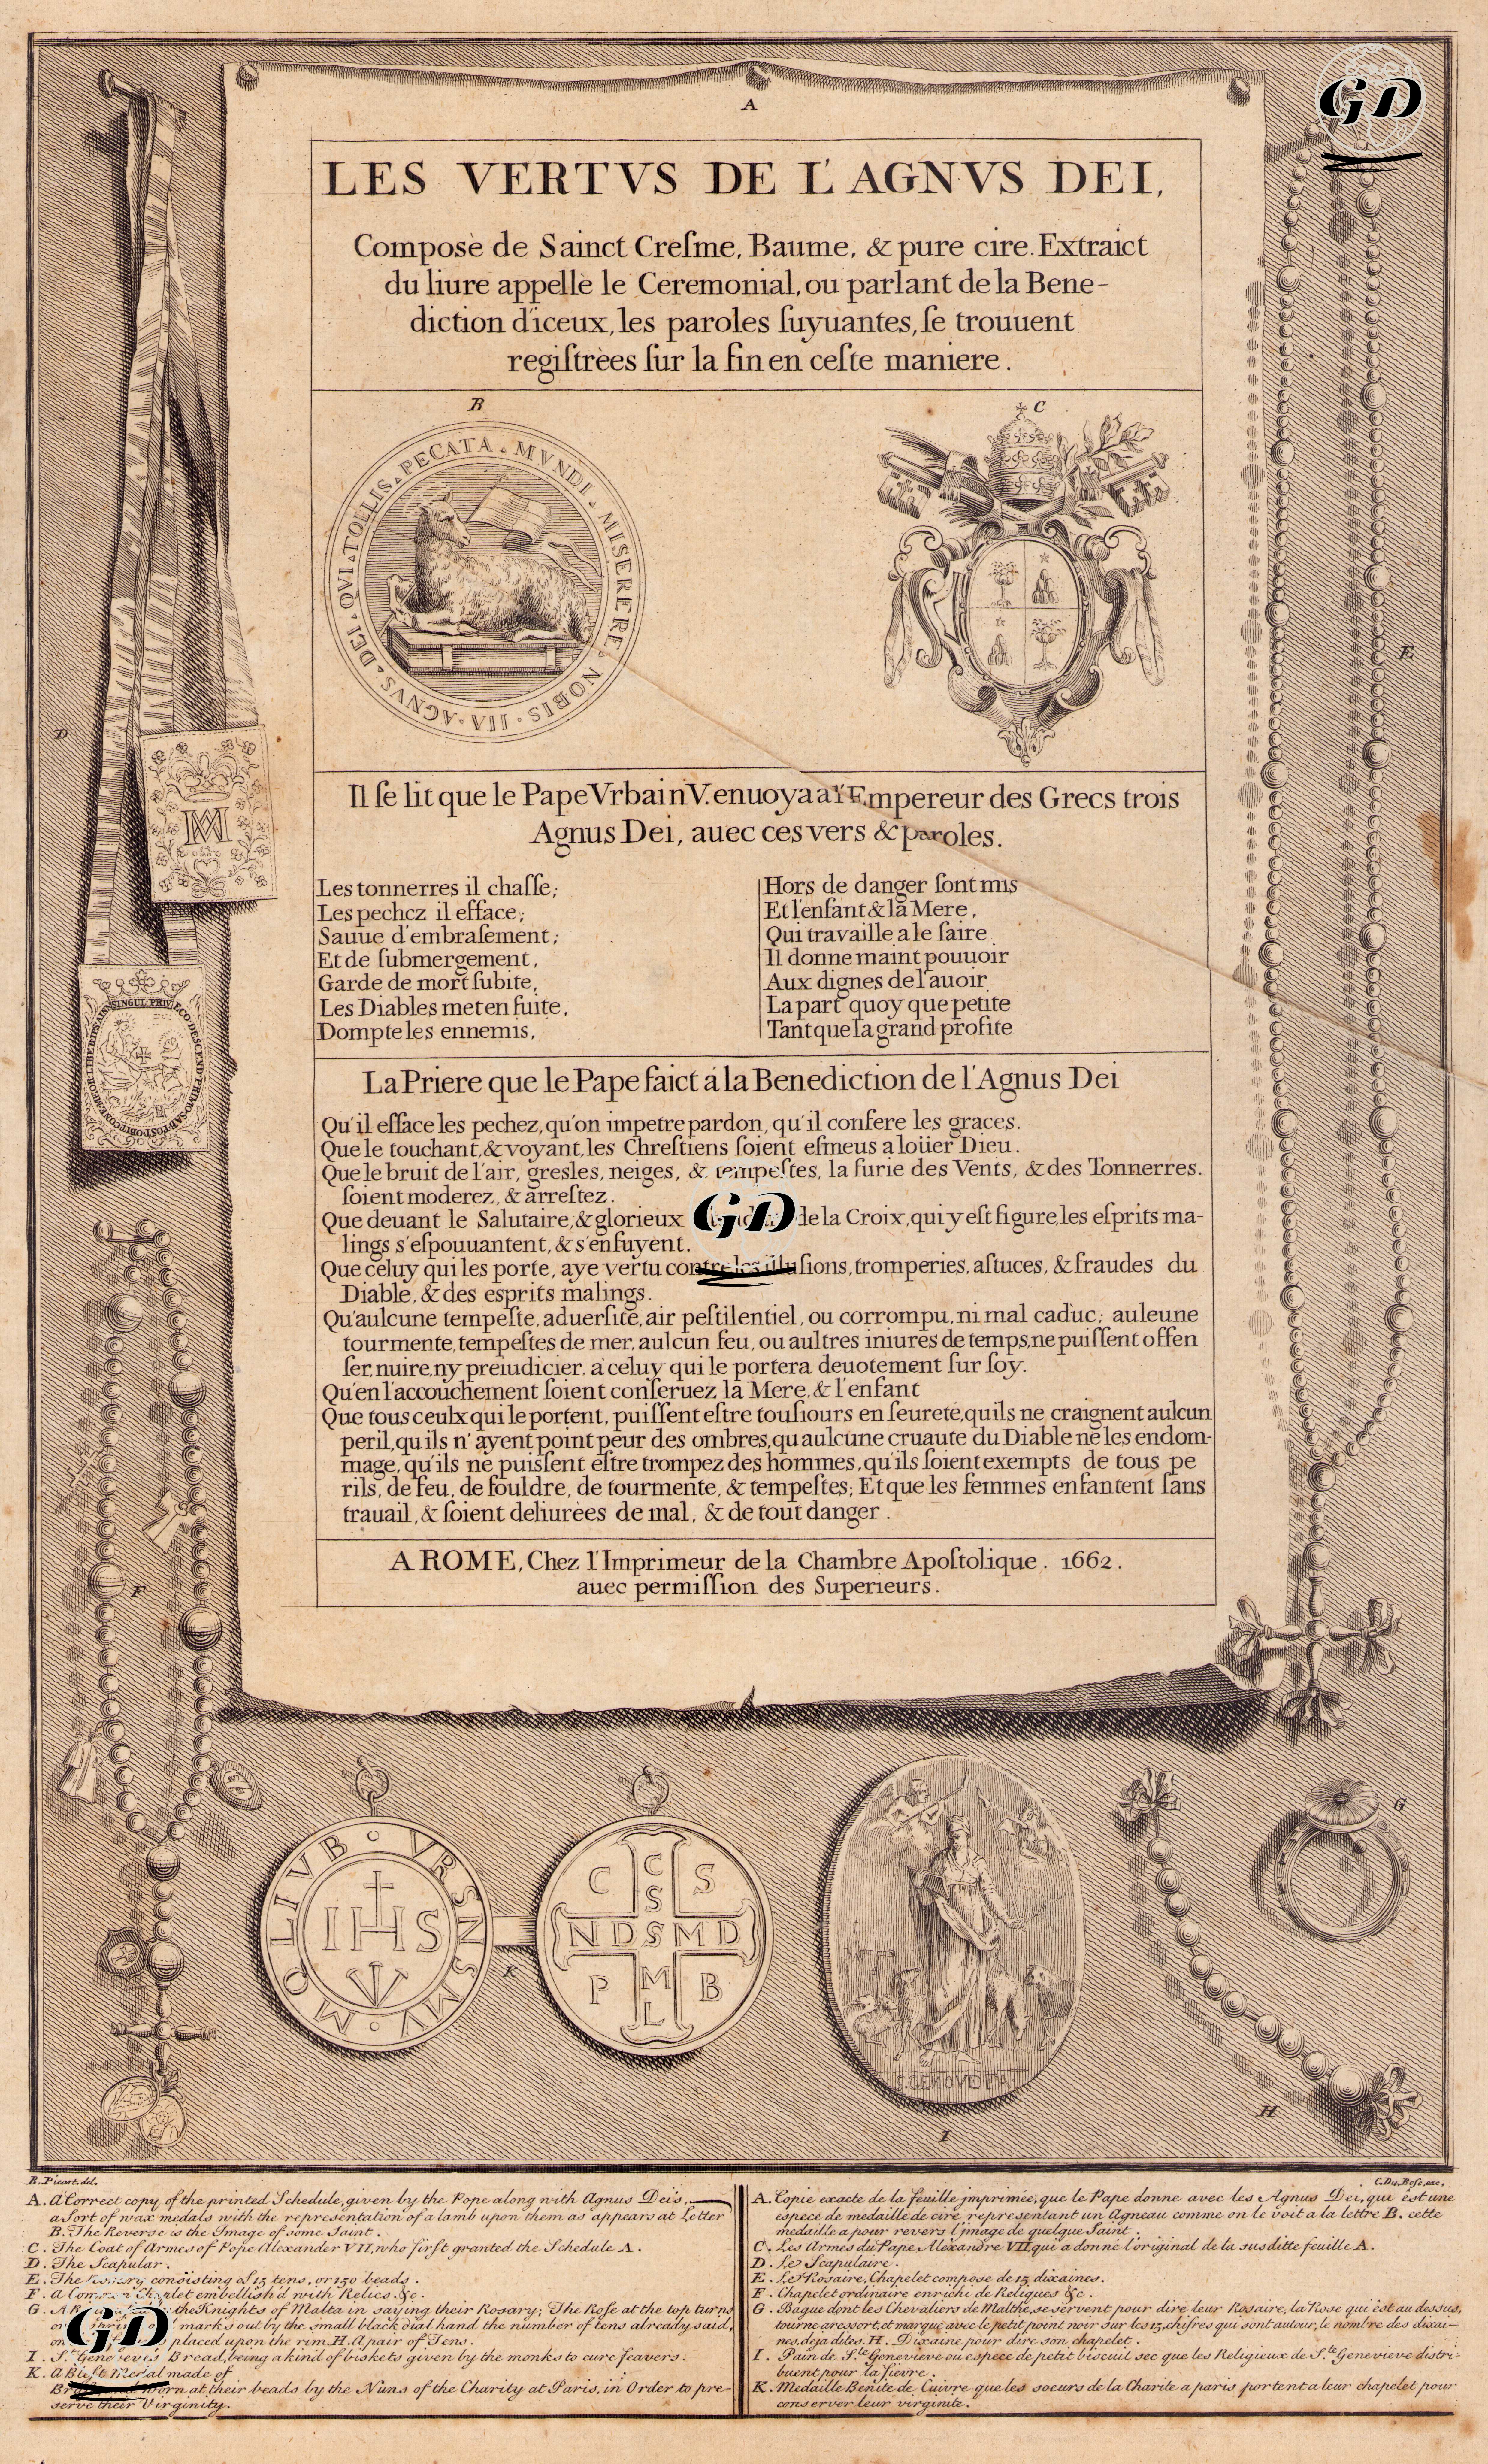 GD
A
LES VERTVS DE L'AGNVS DEI,
Composè de Sainct Creſme, Baume, & pure cire. Extraict
du liure appellè le Ceremonial, ou parlant de la Bene-
diction d'iceux, les paroles ſuyuantes, ſe trouuent
regiſtrèes ſur la fin en ceſte maniere.
B
C
AGNVS · DEI · QVI · TOLLIS · PECATA · MVNDI · MISERERE · NOBIS ·
Il ſe lit que le Pape Vrbain V. enuoya a l'Empereur des Grecs trois
Agnus Dei, auec ces vers & paroles.
Les tonnerres il chaſſe;
Les pechez il efface;
Sauue d'embraſement;
Et de ſubmergement,
Garde de mort ſubite,
Les Diables met en fuite,
Dompte les ennemis,
Hors de danger ſont mis
Et l'enfant & la Mere,
Qui travaille a le faire
Il donne maint pouuoir
Aux dignes de l'auoir
La part quoy que petite
Tant que la grand profite
La Priere que le Pape faict á la Benediction de l'Agnus Dei
Qu'il efface les pechez, qu'on impetre pardon, qu'il confere les graces.
Que le touchant, & voyant, les Chreſtiens ſoient eſmeus a loüer Dieu.
Que le bruit de l'air, greſles, neiges, & tempeſtes, la furie des Vents, & des Tonnerres.
ſoient moderez, & arreſtez.
Que deuant le Salutaire, & glorieux GD de la Croix, qui y eſt figure, les eſprits ma-
lings s'eſpouuantent, & s'enfuyent.
Que celuy qui les porte, aye vertu contre les illuſions, tromperies, aſtuces, & fraudes du
Diable, & des esprits malings.
Qu'aulcune tempeſte, aduerſité, air peſtilentiel, ou corrompu, ni mal caduc; auleune
tourmente, tempeſtes de mer, aulcun feu, ou aultres iniures de temps, ne puiſſent offen
ſer, nuire, ny preiudicier, a celuy qui le portera deuotement ſur ſoy.
Qu'en l'accouchement ſoient conſeruez la Mere, & l'enfant
Que tous ceulx qui le portent, puiſſent eſtre touſiours en ſeureté, quils ne craignent aulcun
peril, qu'ils n'ayent point peur des ombres, qu'aulcune cruaute du Diable ne les endom-
mage, qu'ils ne puiſſent eſtre trompez des hommes, qu'ils ſoient exempts de tous pe
rils, de feu, de fouldre, de tourmente, & tempeſtes; Et que les femmes enfantent ſans
trauail, & ſoient deliurées de mal, & de tout danger.
A ROME, Chez l'Imprimeur de la Chambre Apoſtolique. 1662.
auec permiſſion des Superieurs.
D
E
F
G
H
I
K
IHS
VRSNSMV · MQLIVB
C S
C S
NDSMD
P M B
L
S GENOVEFA
B. Picart. del.
C. Du Bosc, exc.
A. A Correct copy of the printed Schedule, given by the Pope along with Agnus Dei's,
a Sort of wax medals with the representation of a lamb upon them as appears at Letter
B. The Reverse is the Image of some Saint.
C. The Coat of Armes of Pope Alexander VII, who firſt granted the Schedule A.
D. The Scapular.
E. The Rosary consisting of 15 tens, or 150 beads.
F. A Common Chaplet embellish'd with Relics &c.
G. the Knights of Malta in saying their Rosary; The Roſe at the top turns
marks out by the small black dial hand the number of tens already said,
placed upon the rim. H. A pair of Tens.
I. S.t Geneveves Bread, being a kind of biskets given by the monks to cure feavers.
K. A Bleſt Medal made of
worn at their beads by the Nuns of the Charity at Paris, in Order to pre-
serve their Virginity.
GD
A. Copie exacte de la feuille jmprimée, que le Pape donne avec les Agnus Dei, qui est une
espece de medaille de cire representant un Agneau comme on le voit a la lettre B. cette
medaille a pour revers l'jmage de quelque Saint.
C. Les Armes du Pape Alexandre VII qui a donne l'original de la susditte feuille A.
D. Le Scapulaire.
E. Le Rosaire, Chapelet compose de 15 dixaines.
F. Chapelet ordinaire enrichi de Reliques &c.
G. Bague dont les Chevaliers de Malthe, se servent pour dire leur Rosaire, la Rose qui est au dessus,
tourne a ressort, et marque avec le petit point noir sur les 15, chifres qui sont autour, le nombre des dixai-
nes, deja dites. H. Dixaine pour dire son chapelet.
I. Pain de S.te Genevieve ou espece de petit biscuit sec que les Religieux de S.te Genevieve distri-
buent pour la fievre.
K. Medaille Benite de Cuivre que les soeurs de la Charite a paris portent a leur chapelet pour
conserver leur virginite.